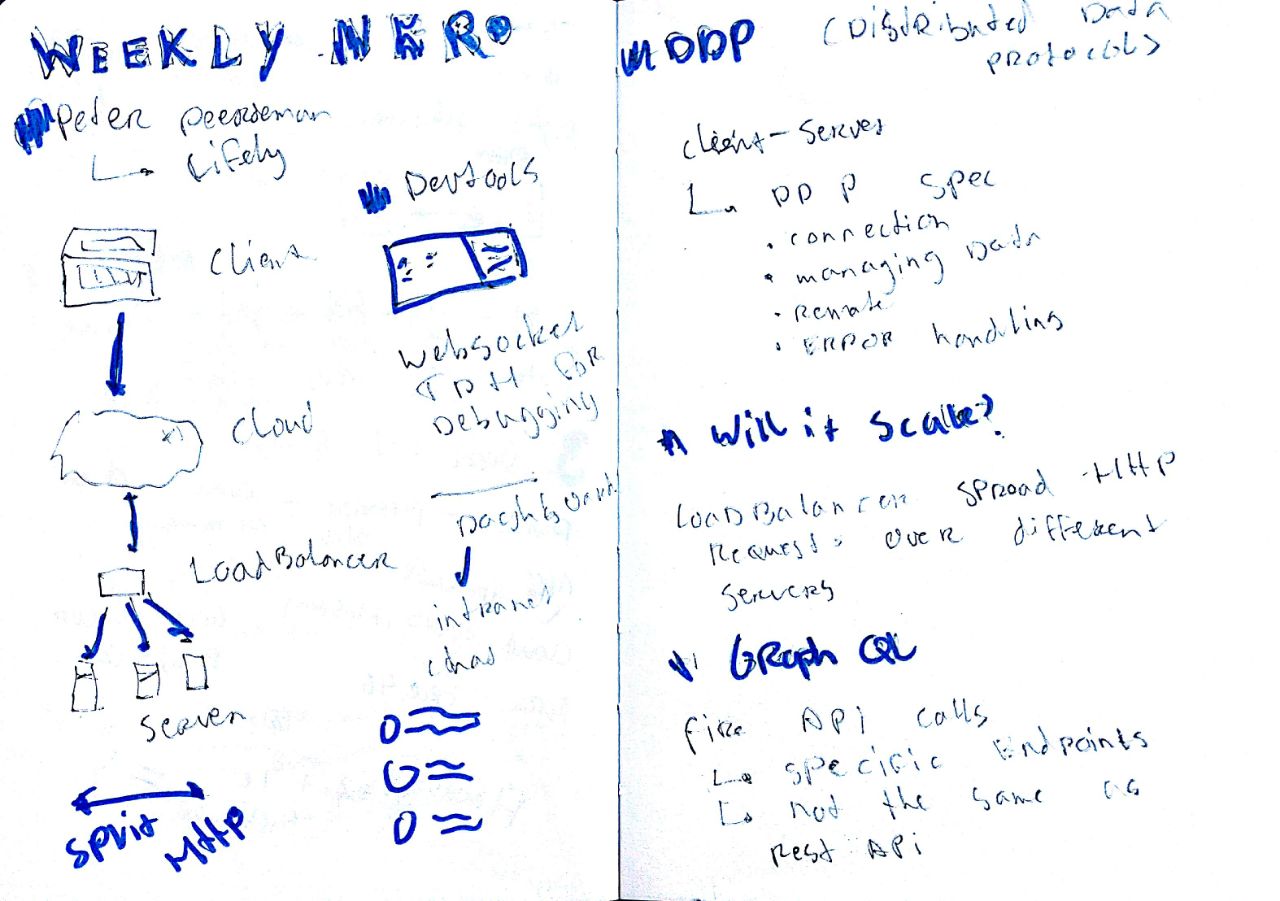 WEEKLY NERO
Peter Peerdeman
Lifely
Client
Cloud
LoadBalancer
Server
Split
HTTP
Devtools
Websocket
FOR
Debugging
Dashboard
intranet
DDP (Distributed Data
Protocols)
Client-Server
DDP Spec
• connection
• managing Data
• Remote
• ERROR handling
Will it Scale?
LoadBalancer spread HTTP
Requests over different
Servers
GRaph QL
fire API calls
specific Endpoints
not the same as
Rest API